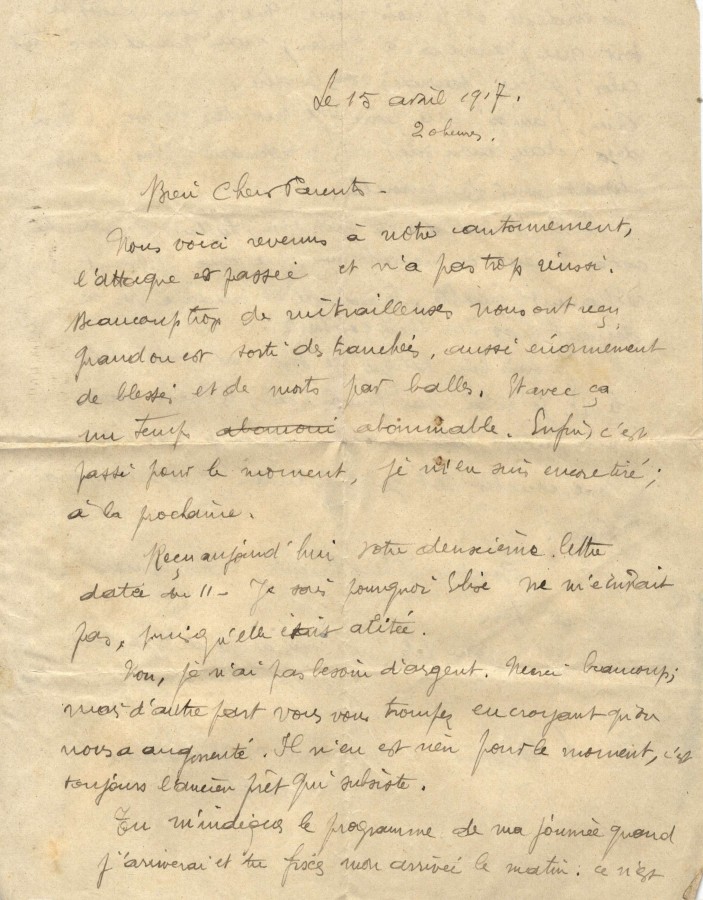 Le 15 avril 1917.
20 heures.
Bien Chers Parents -
Nous voici revenus à notre cantonnement,
l'attaque est passée et n'a pas trop réussi.
Beaucoup trop de mitrailleuses nous ont reçu
quand on est sorti des tranchées, aussi énormément
de blessés et de morts par balles. Et avec ça
un temps abomoni abominable. Enfin c'est
passé pour le moment, je m'en suis encore tiré ;
à la prochaine.
Reçu aujourd'hui votre deuxième lettre
datée du 11 - Je sais pourquoi Elise ne m'écrivait
pas, puisqu'elle était alitée.
Non, je n'ai pas besoin d'argent. Merci beaucoup ;
mais d'autre part vous vous trompez en croyant qu'on
nous a augmenté. Il n'en est rien pour le moment, c'est
toujours l'ancien prêt qui subsiste.
Tu m'indiques le programme de ma journée quand
j'arriverai et tu fixes mon arrivée le matin : ce n'est